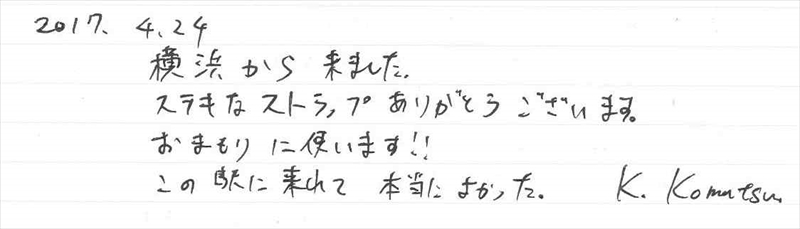 2017. 4.24
横浜から 来ました。
ステキな ストラップ ありがとうございます。
おまもりに使います!!
この駅に来れて 本当によかった。 K. Komatsu